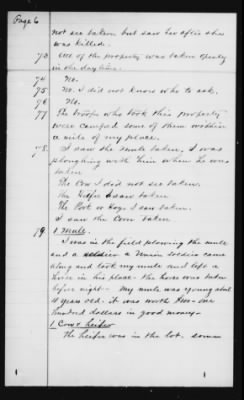 Page 6
not see taken but saw her after she
was killed.
73 All of the property was taken openly
in the day time.
74 No.
75 No. I did not know who to ask.
76 No.
77 The troops who took this property
were camped some of them within
a mile of my place.
78. I saw the mule taken, I was
ploughing with him when he was
taken
The Cow I did not see taken.
The Heifer I saw taken
The Pork or Hogs I saw taken.
I saw the Corn taken
79. 1 Mule.
I was in the field plowing the mule
and a soldier a Union soldier came
along and took my mule and left a
horse in his place - the horse was taken
before night - My mule was young about
4 years old. it was worth two - one
hundred dollars in good money -
1 Cow & heifer
The heifer was in the lot. some